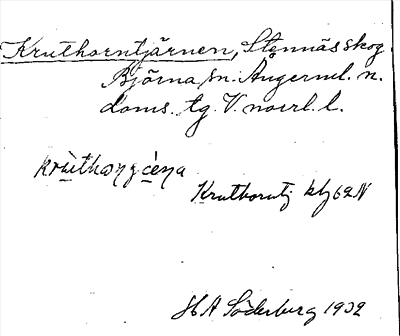 Kruthorntjärnen, Stennäs skog.
Björna sn. Ångerml. n.
doms. tg. V. norrl. l.
Kruthorntj kbg 62 N
H A Söderberg 1932